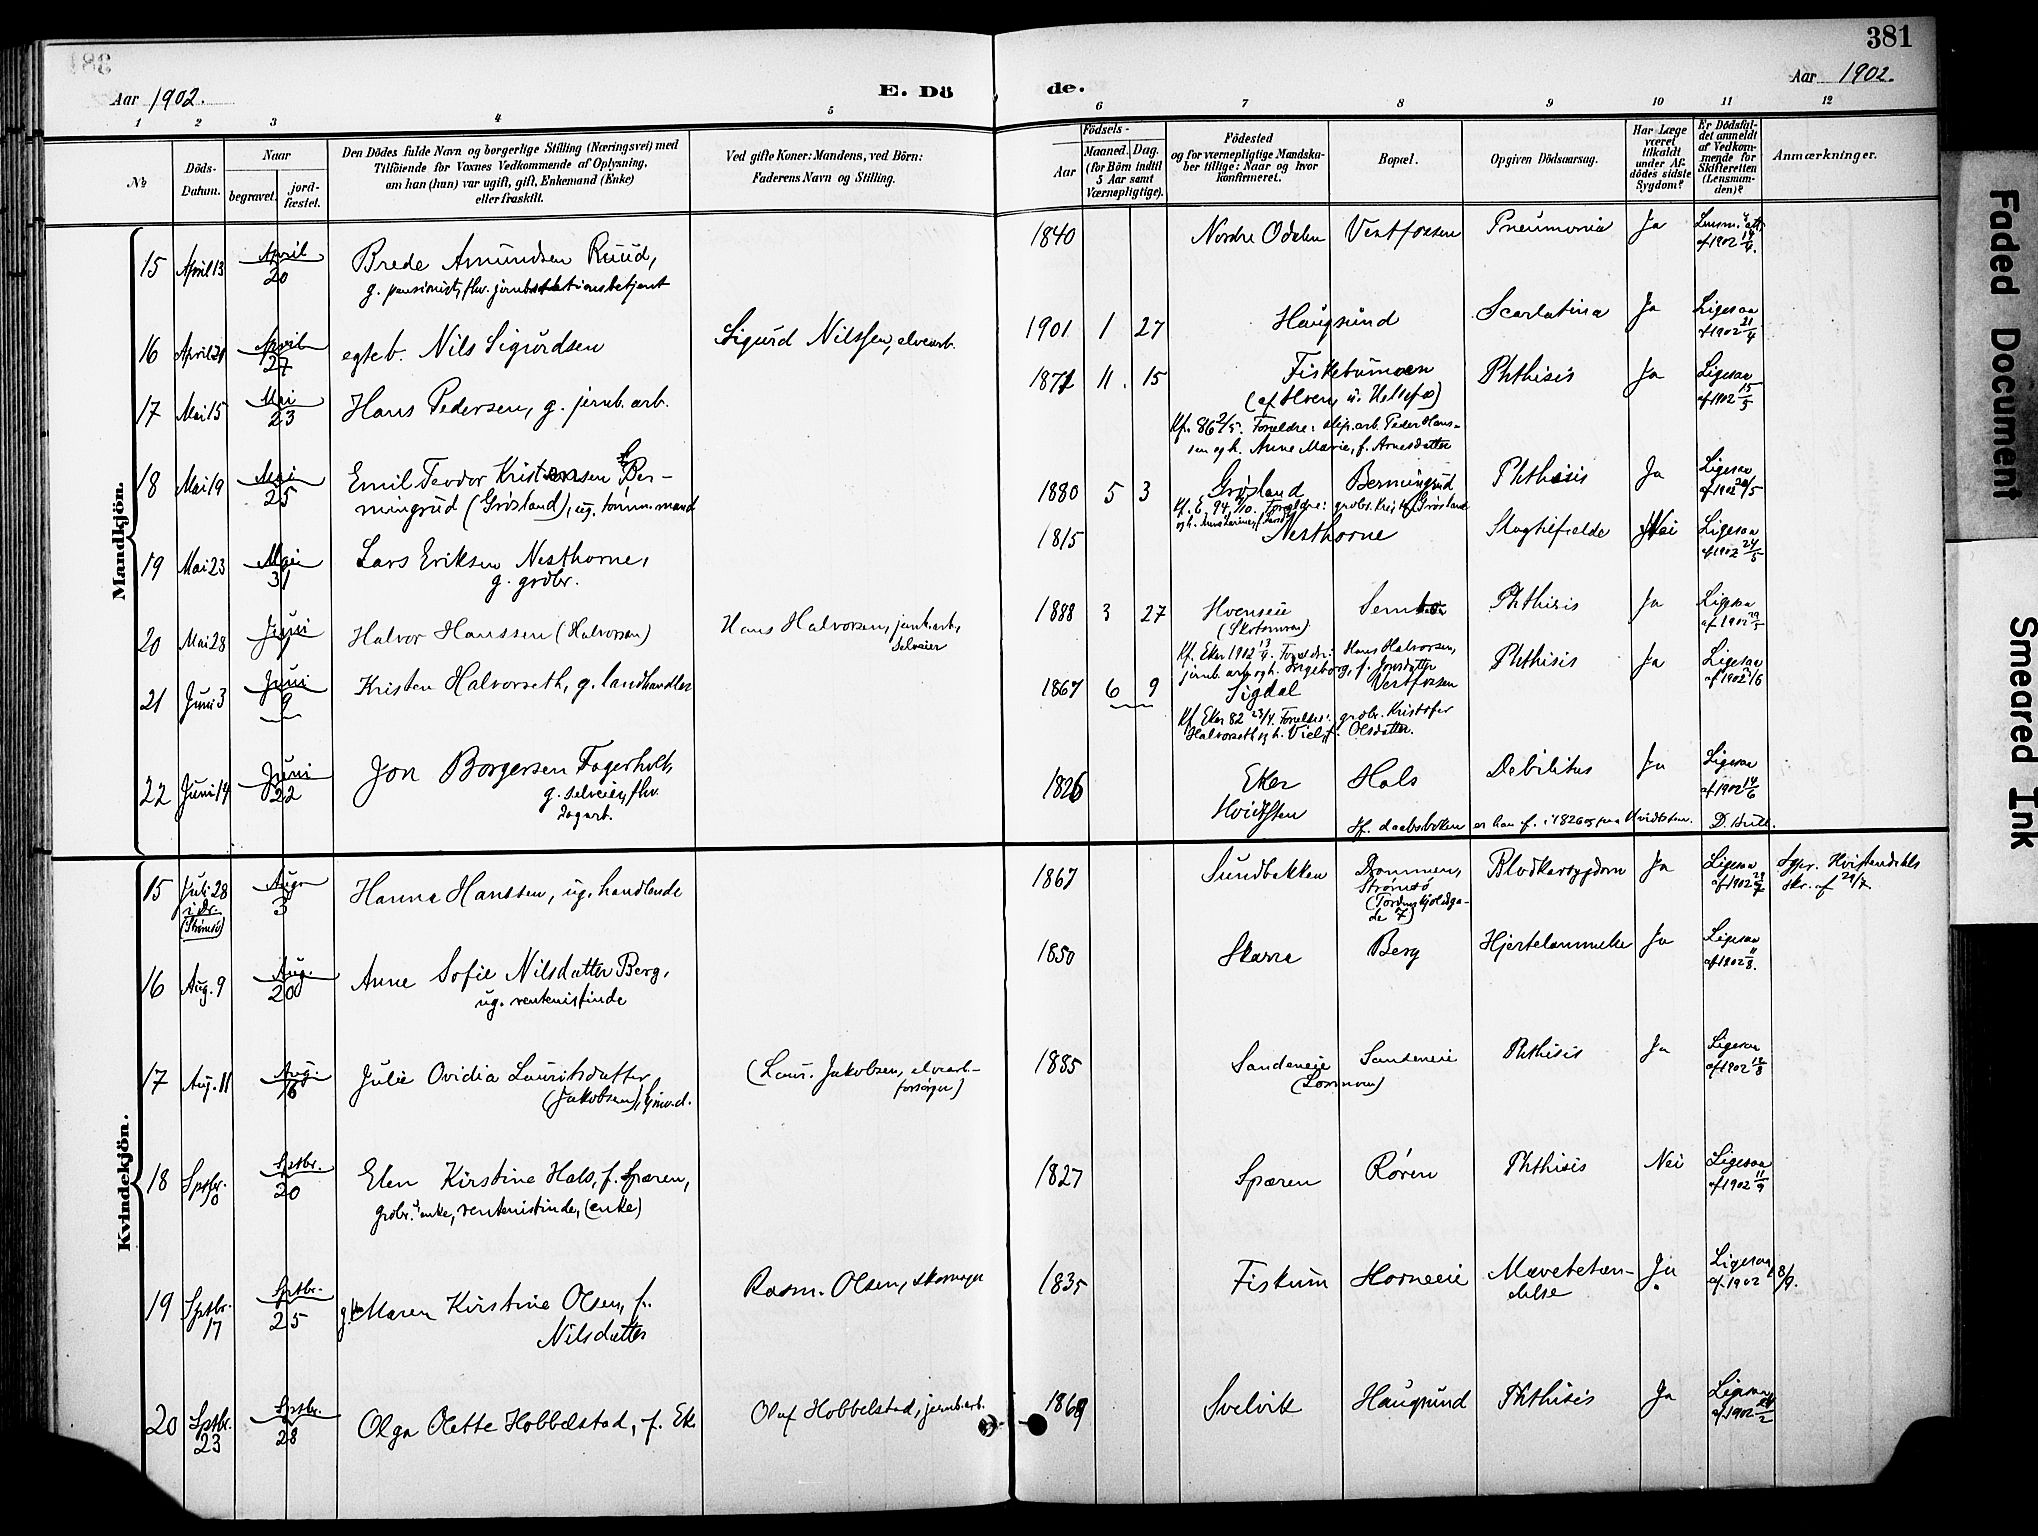 381
Aar 1902.
E. Dö
de.
Aar 1902.
1 2 3 4 5 6 7 8 9 10 11 12
№
Döds-
Datum.
Naar
begravet.
jord-
fæstet.
Den Dödes fulde Navn og borgerlige Stilling (Næringsvei) med
Tilföiende for Voxnes Vedkommende af Oplysning,
om han (hun) var ugift, gift, Enkemand (Enke)
eller fraskilt.
Ved gifte Koner: Mandens, ved Börn:
Faderens Navn og Stilling.
Födsels-
Aar
Maaned. Dag.
(for Börn indtil
5 Aar samt
Værnepligtige).
Födested
og for værnepligtige Mandska-
ber tillige: Naar og hvor
konfirmeret.
Bopæl.
Opgiven Dödsaarsag.
Har Læge
været
tilkaldt
under Af-
dödes sidste
Sygdom?
Er Dödsfal-
det anmeldt
af Vedkom-
mende for
Skifteretten
(Lensman-
den)?
Anmærkninger.
Mandkjön.
15 April 13 April 20 Brede Amundsen Ruud, 1840 Nordre Odalen Vestfossen Pneumonia Ja Lensm.'s att.
g. pensionist, fhv. jernb.stationsbetjent af 1902 14/4.
16 April 21 April 27 egteb. Nils Sigurdsen Sigurd Nilssen, elvearb. 1901 1 27 Haugsund Scarlatina Ja Ligesaa
af 1902 21/4
17 Mai 15 Mai 23 Hans Pedersen, g. jernb. arb. 1871 11. 15 Fiskebumoen Phthisis Ja Ligesaa
af 1902 15/5
Kf. 86 2/5. Forældre: slip.arb. Peder Hans-
sen og h. Anne Marie, f. Arnesdatter
18 Mai 19 Mai 25 Emil Teodor Kristensen Ber- 1880 5 3 Grøsland Bermingrud Phthisis Ja Ligesaa
mingrud (Grøsland), ug. tømm.mand af 1902 20/5
19 Mai 23 Mai 31 Lars Eriksen Nesthorne, 1815 Nesthorne Slagtilfælde Nei Ligesaa
g. grdbr. af 1902 24/5
20 Mai 28 Juni 7 Halvor Hanssen (Halvorsen) Hans Halvorsen, jernb.arb., 1888 3 27 Hvenseie Phthisis Ja Ligesaa
selveier (Skotemoen) af 1902 29/5
Kf. Eker 1902 13/4. Foreldre: Hans Halvorsen,
jernb. arb. og h. Ingeborg, f. Jonsdatter
21 Juni 3 Juni 9 Kristen Halvorseth, g. landhandler 1867 6 9 Sigdal Vestfossen Phthisis Ja Ligesaa
Kf. Eker 82 23/4. Forældre: grdbr. Kristofer
Halvorseth og h. f. Olsdatter.
22 Juni 14 Juni 22 Jon Borgersen Fagerholt, 1826 Eker Hals Debilitas Ja Ligesaa
g. selveier, fhv. af 1902 14/6
dagarb. Hvidtsten
Kf. daabsboken er han f. i 1826 og paa Hvidtsten. D. Hull.
Kvindekjön.
15 Juli 28 Aug. 3 Hanna Hanssen, ug. handlende 1867 Sundbakken Drammen, Blodkarsygdom Ja Ligesaa
i Dr. Strømsø af 1902 29/7
(Strømsø) (Tordenskjoldsga-
de 7)
skr. af 29/7
16 Aug. 9 Aug. 20 Anne Sofie Nilsdatter Berg, 1850 Skarra Berg Hjertelammelse Ja Ligesaa
ug. rentenistinde af 1902 11/8.
17 Aug. 11 Aug. 16 Julie Ovidia Lauritsdatter (Laur. Jakobsen, elvearb- 1885 Sandeneie Sandeneie Phthisis Ja Ligesaa
(Jakobsen), forsørger) af 1902 12/8
18 Sptbr. 8 Sptbr. 20 Elen Kirstine Hals, f. Spæren, 1827 Spæren Røren Phthisis Nei Ligesaa
grdbr.'s enke, rentenistinde, (enke) af 1902 11/9
19 Sptbr. 17 Sptbr. 25 Maren Kirstine Olsen, f. Rasm. Olsen, skomager 1835 Fiskum Horneeie Mavebetæn- Ja Ligesaa
Nilsdatter delse af 1902 18/9.
20 Sptbr. 23 Sptbr. 28 Olga Olette Hobbelstad, f. Ek Olaf Hobbelstad, jernb.arb. 1869 Svelvik Haugsund Phthisis Ja Ligesaa
Faded Document
Smeared Ink